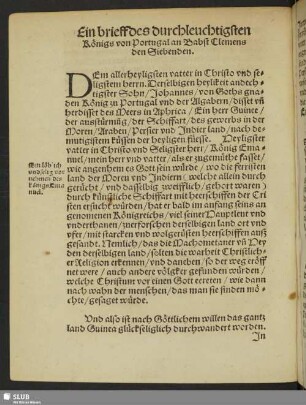 Ein brieff des durchleuchtigsten
Königs von Portugal an Babst Clemens
den Siebenden.
DEm allerheyligsten vatter in Christo vnd se-
ligstem herrn. Derselbigen heylikeit andech-
tigster Sohn / Johannes / von Goths gna-
den König in Portugal vnd der Algaben / disset vñ
herdisset des Meers in Aphrica / Ein herr Guinee /
der aussstürmüg / der Schiffart / des gewerbs in der
Moren / Araben / Perser vnd Indier land / nach de-
mutigistem küssen der heyligen füesse. Heyligster
vatter in Christo vnd Seligster herr / König Ema-
nuel / mein herr vnd vatter / als er zugemüthe fasset /
wie angenhem es Gott sein würde / wo die fernisten
land der Moren vnd Indiern / welche allein durch
gerücht / vnd dasselbig zweiflich / gehort waren)
durch künstliche Schiffart mit heerschiffen der Cri
sten ersucht würden / hat er bald im anfang seins an
genomenen Königreichs / viel seiner Hauptleut vnd
vnderthanen / vnerforschen derselbigen land ort vnd
vfer / mit starcken vnd wolgerüsten heerschiffen auß
gesandt. Nemlich / das die Machometaner vñ Hey
den derselbigen land / solten die warheit Christlich-
er Religion erkennen / vnd daneben / so der weg eröff
net were / auch andere völcker gefunden würden /
welche Christum vor einen Gott ereeten / wie dann
nach wahn der menschen / das man sie finden mö-
chte / gesaget würde.
Vnd also ist nach Göttlichem willen das gantz
land Guinea glückseliglich durchwandert worden.
In